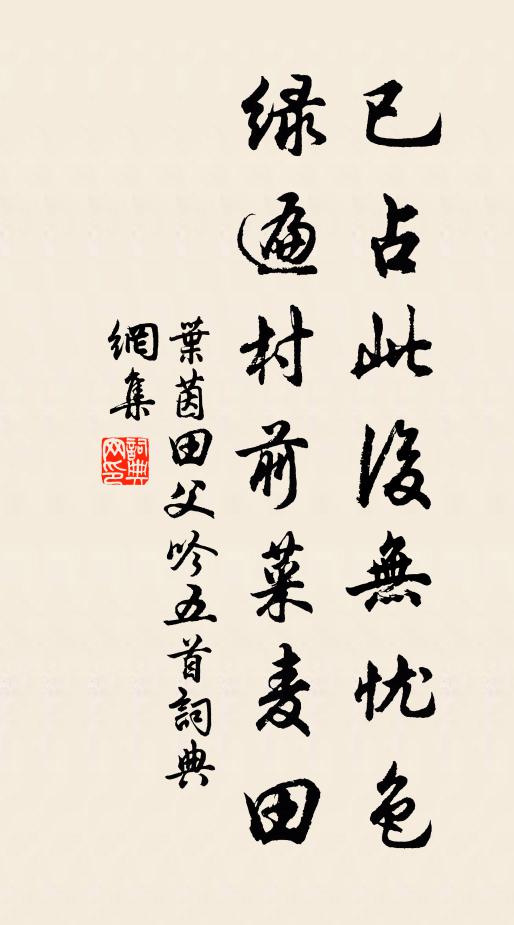 已占此後無忧色
绿遍村前菜麦田
葉茵田父吟五首詞典
網集
詞典
网印